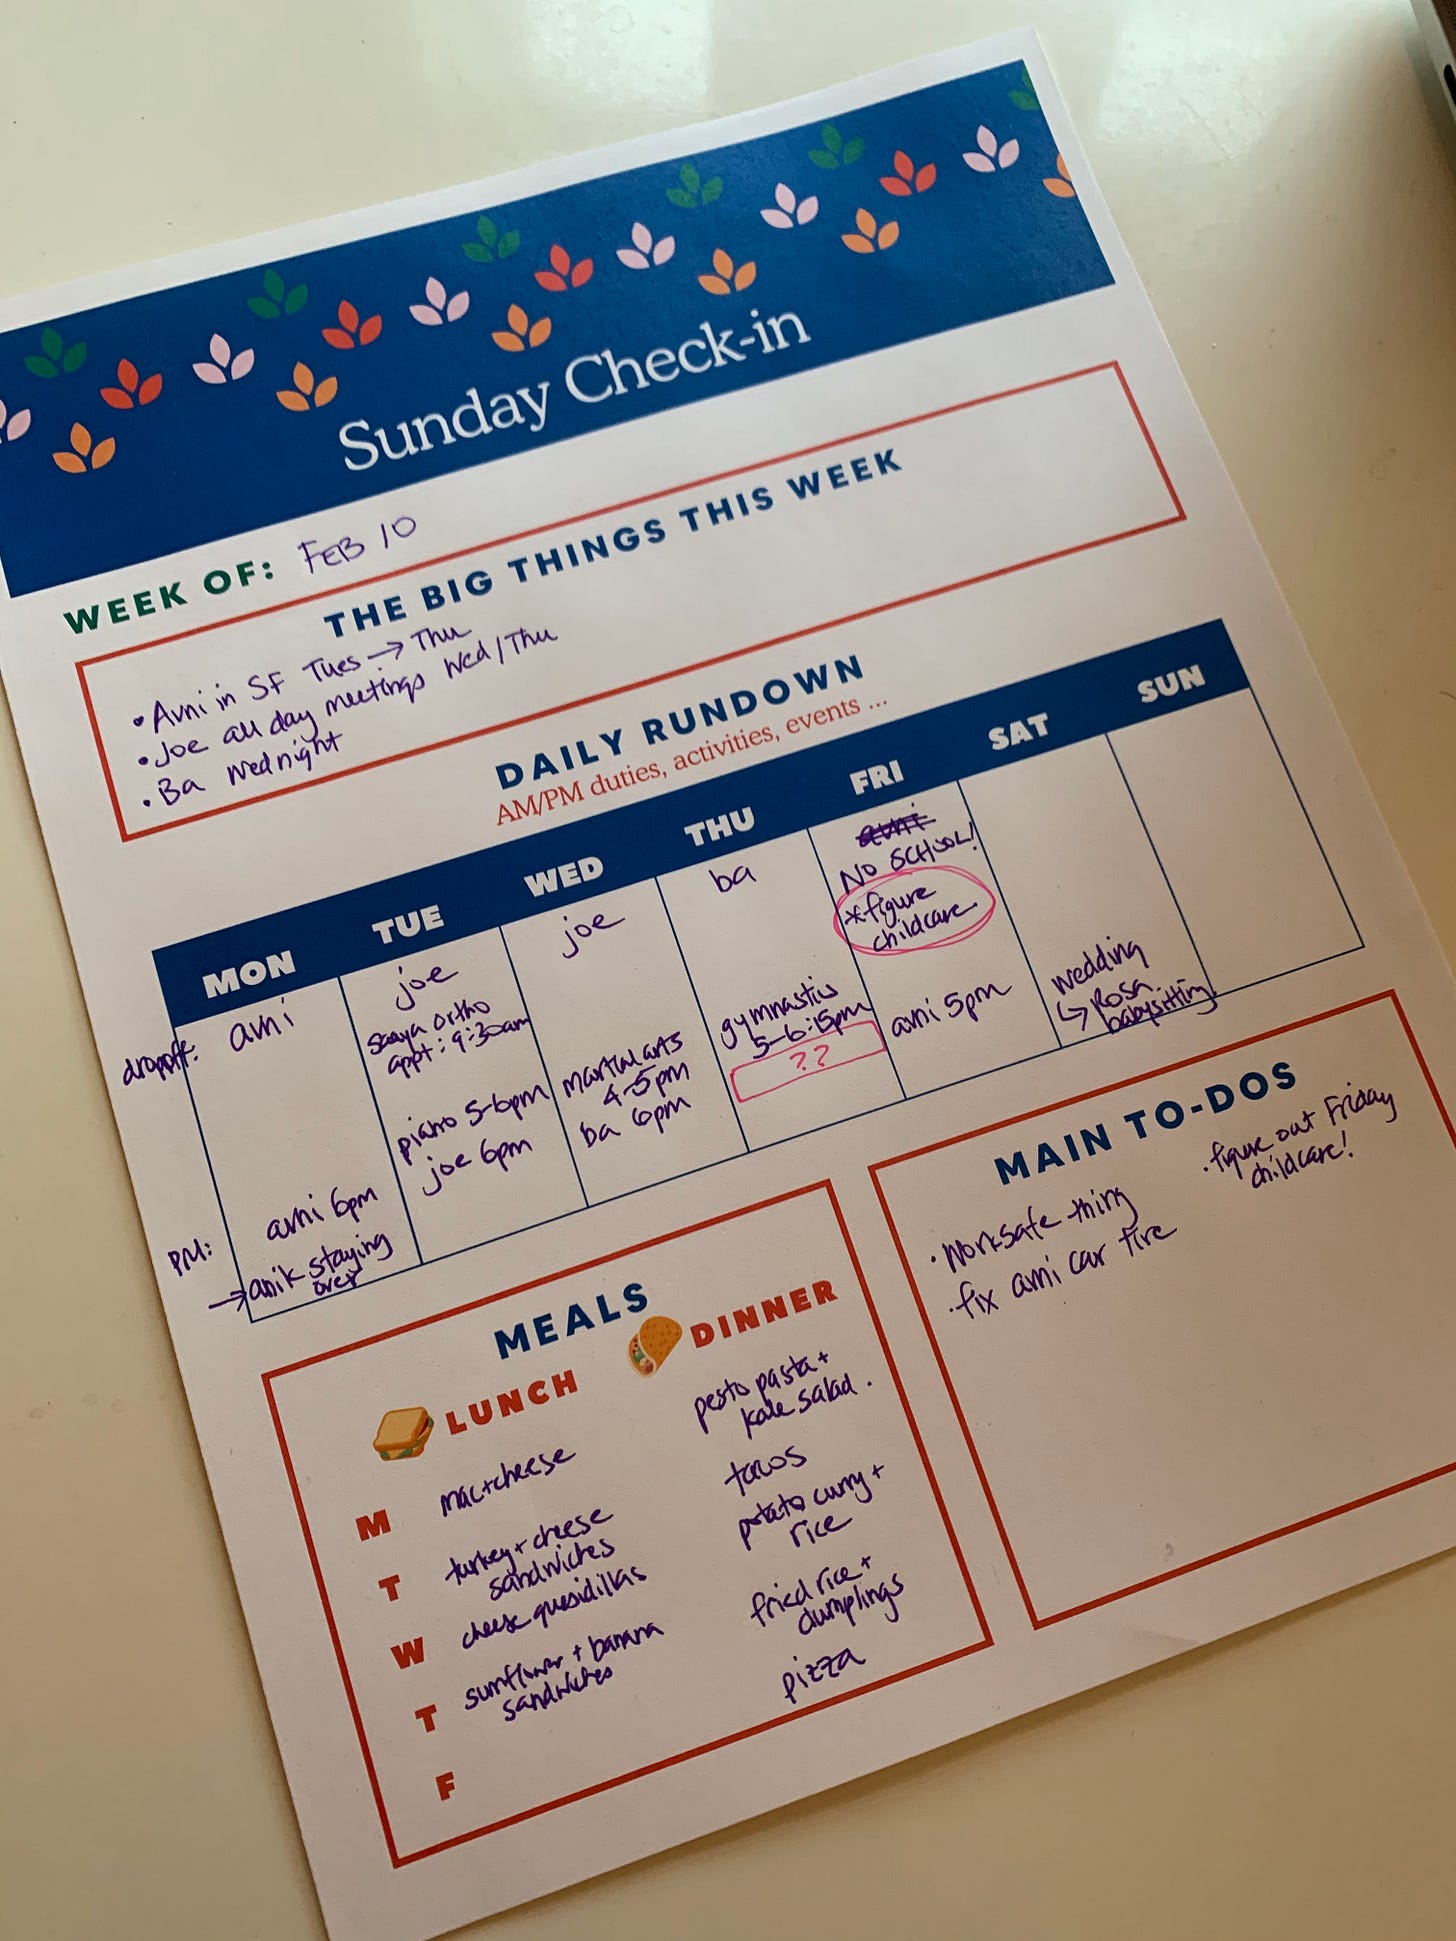 Sunday Check-in
WEEK OF: FEB 10
THE BIG THINGS THIS WEEK
• Avni in SF Tues → Thu
• Joe all day meetings Wed/Thu
• Ba Wed night
DAILY RUNDOWN
AM/PM duties, activities, events ...
MON
TUE
WED
THU
FRI
SAT
SUN
dropoff:
avni
PM:
avni 6pm
→ anik staying
over
joe
Saaya ortho
appt: 9:30am
piano 5-6pm
joe 6pm
joe
martial arts
4-5pm
ba 6pm
ba
gymnastics
5-6:15pm
??
avni
NO SCHOOL!
*figure
childcare
avni 5pm
wedding
↳ Rosa
babysitting
MEALS
LUNCH
DINNER
M
mac+cheese
pesto pasta +
kale salad.
T
turkey + cheese
sandwiches
tacos
W
cheese quesidillas
potato curry +
rice
T
sunflower + banana
sandwiches
fried rice +
dumplings
F
pizza
MAIN TO-DOS
• Worksafe thing
• fix avni car tire
• figure out Friday
childcare!